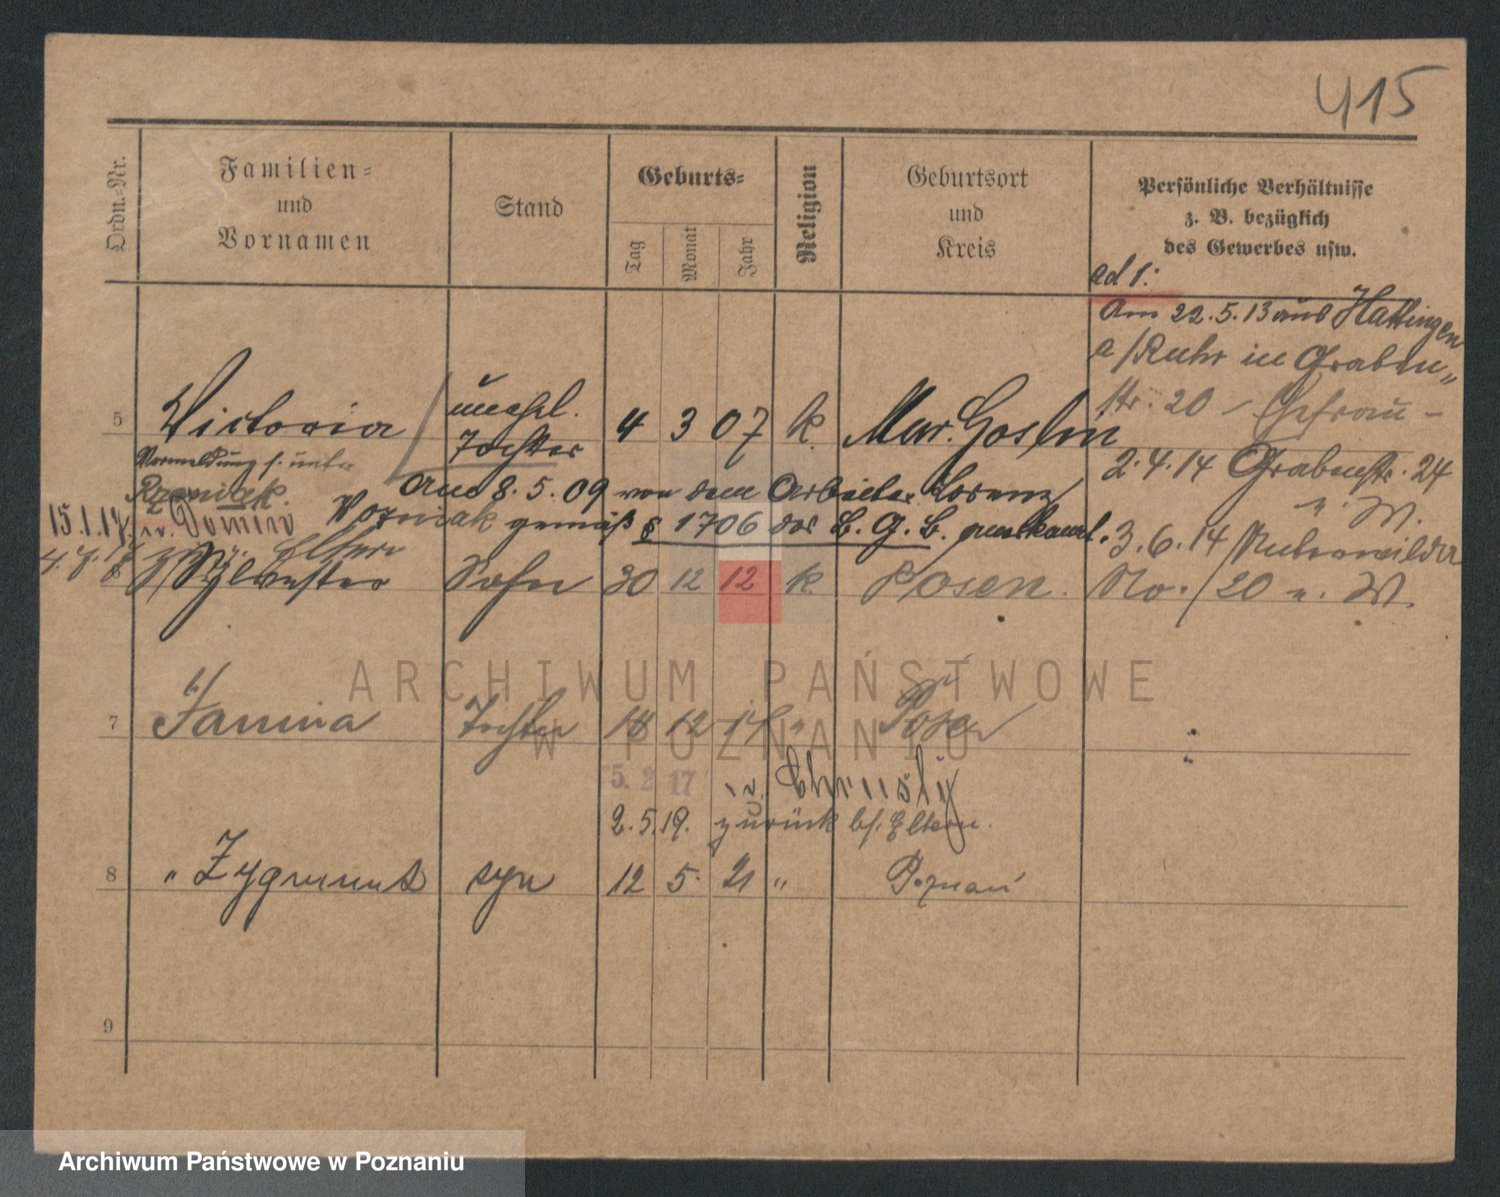 415
Ordn.-Nr.
Familien=
und
Vornamen
Stand
Geburts=
Tag
Monat
Jahr
Religion
Geburtsort
und
Kreis
Persönliche Verhältnisse
z. B. bezüglich
des Gewerbes usw.
ad 1:
Am 22.5.13 aus Hattingen
a/Ruhr in Graben„
str. 20 - Ehefrau -
2.4.14 Grabenstr. 24
u. W.
3.6.14
No. 20 u. W.
5 Victoria unehel. Tochter 4 3 07 k. Mur. Goslin
Vormeldung s. unter
Am 8.5.09 von dem Arbeiter Lorenz
Wozniak gemäß § 1706 des B. G. B. anerkannt.
15.1.17. Domino
Eltern
Sylvester Sohn 30 12 12 k. Posen.
7 Janina Tochter 18 12 17 " Posen
5. 2 17
2.5.19. zurück bf. Eltern.
8 " Zygmunt syn 12 5. 21 " Poznań
9
ARCHIWUM PAŃSTWOWE
W POZNANIU
Archiwum Państwowe w Poznaniu